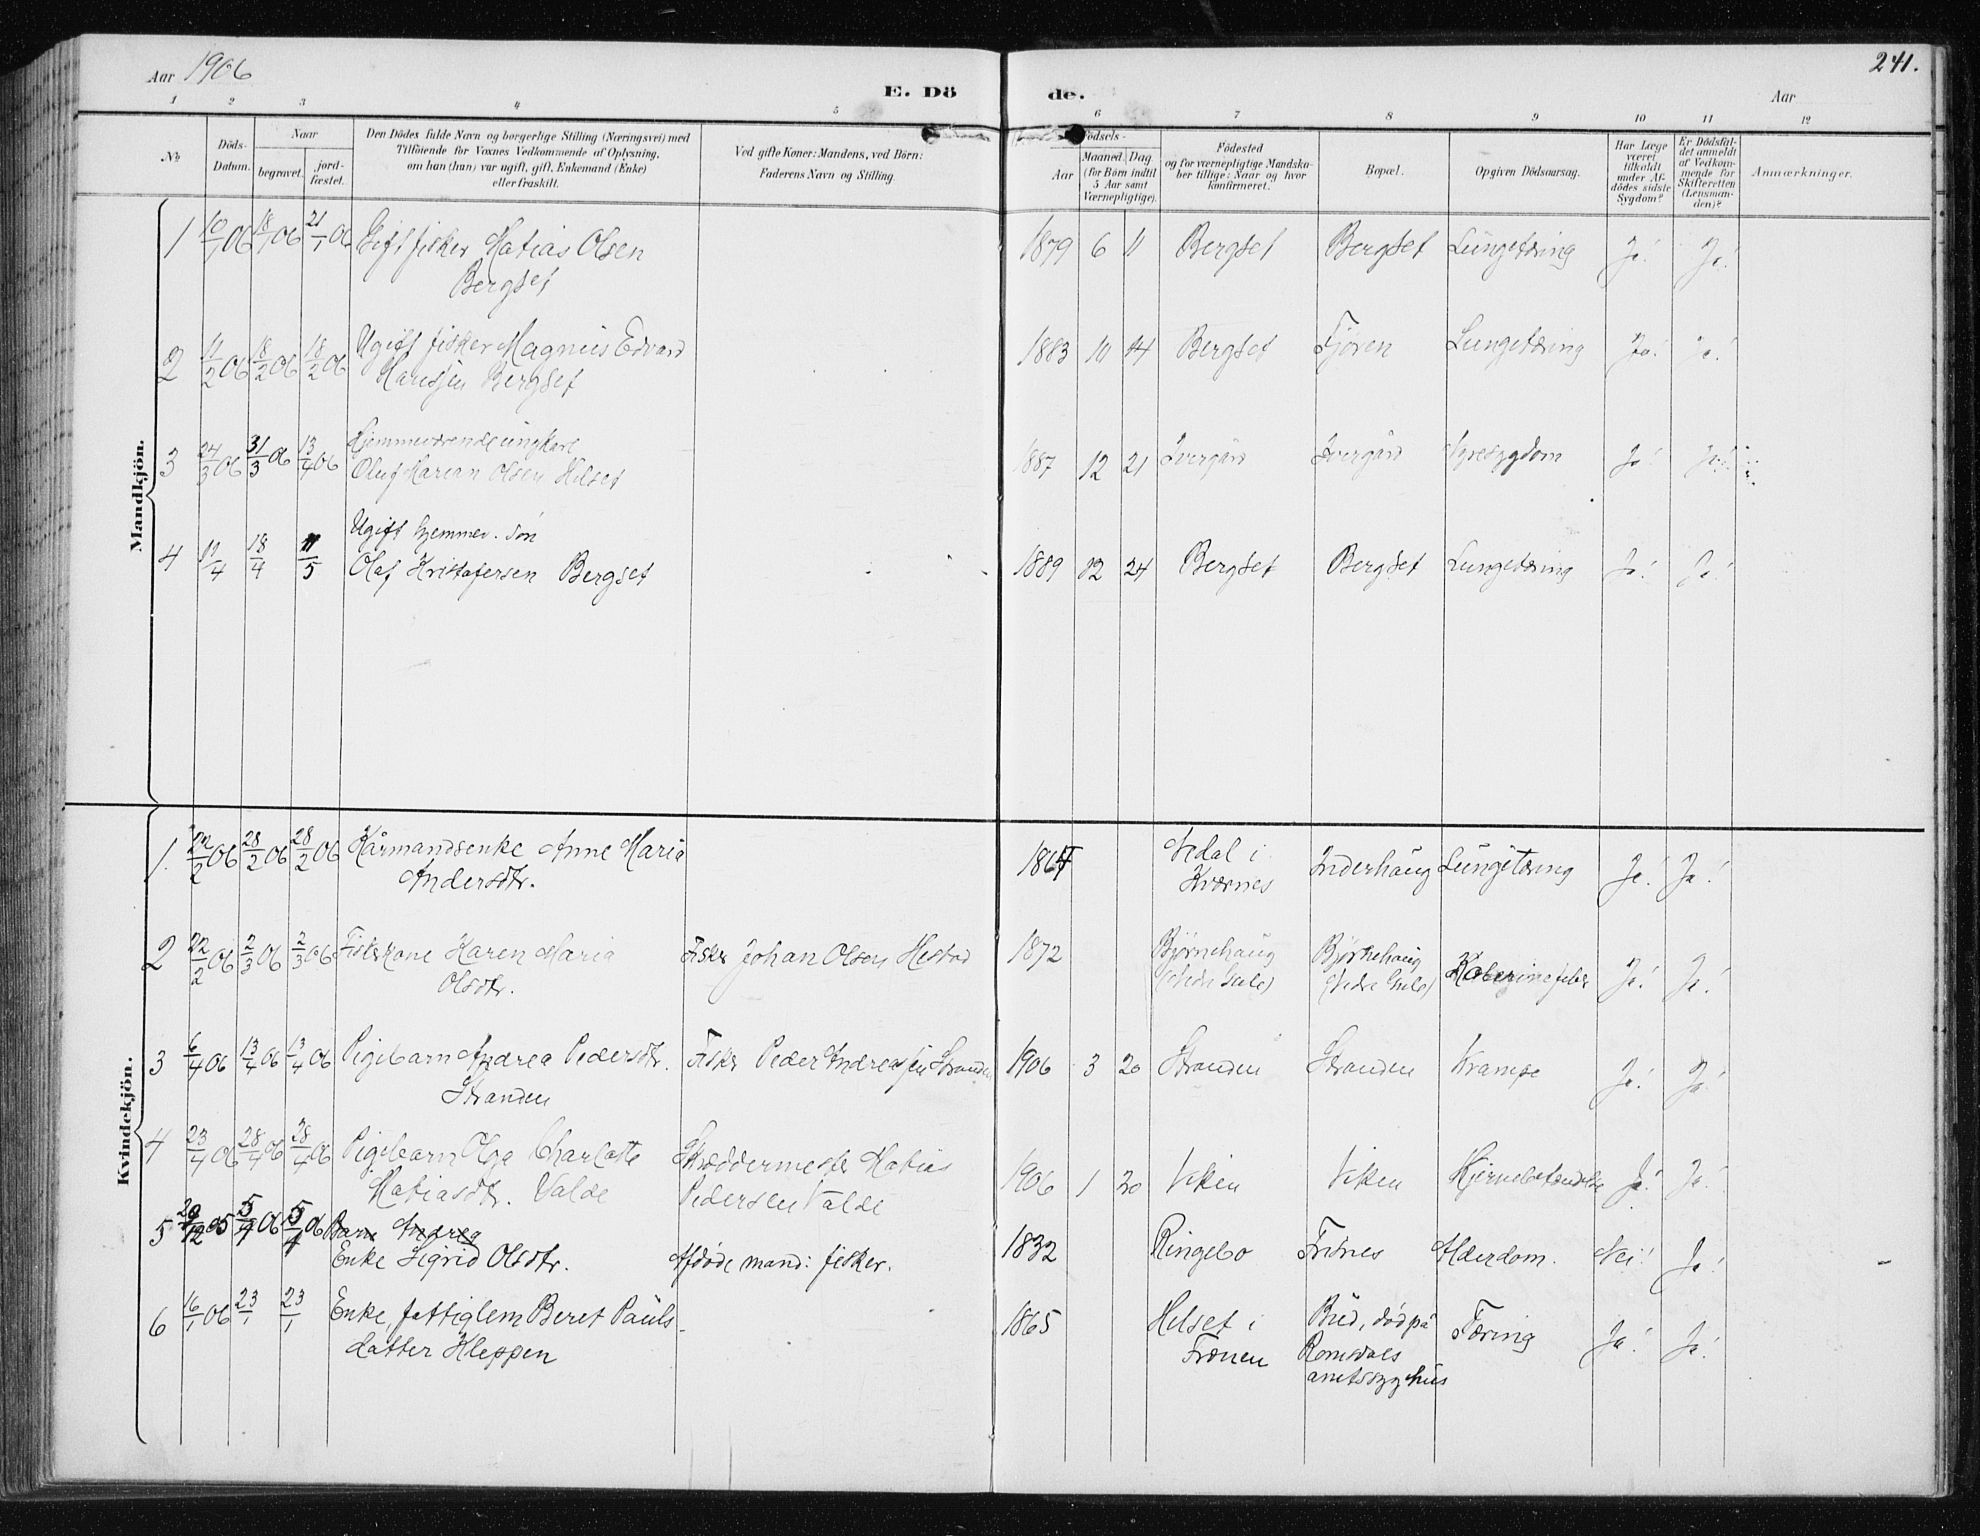 Aar 1906
E. Dö
de.
Aar
241.
1 2 3 4 5 6 7 8 9 10 11 12
No
Döds-
Datum.
Naar
begravet.
jord-
fæstet.
Den Dödes fulde Navn og borgerlige Stilling (Næringsvei) med
Tilföiende for Voxnes Vedkommende af Oplysning,
om han (hun) var ugift, gift, Enkemand (Enke)
eller fraskilt.
Ved gifte Koner: Mandens, ved Börn:
Faderens Navn og Stilling.
Födsels-
Aar
Maaned.
Dag
(for Börn indtil
5 Aar samt
Værnepligtige).
Födested
og for værnepligtige Mandska-
ber tillige: Naar og hvor
konfirmeret.
Bopæl.
Opgiven Dödsaarsag.
Har Læge
været
tilkaldt
under Af-
dödes sidste
Sygdom?
Er Dödsfal-
det anmeldt
af Vedkom-
mende for
Skifteretten
(Lensman-
den)?
Anmærkninger.
Mandkjön.
1 10/1 06 18/1 06 21/1 06 Gift fisker Matias Olsen
Bergset
1879 6 11 Bergset Bergset Lungetæring Ja! Ja!
2 11/2 06 18/2 06 18/2 06 Ugift fisker Magnus Edvard
Hansen Bergset
1883 10 14 Bergset Fjøren Lungetæring Ja! Ja!
3 24/3 06 31/3 06 13/4 06 Hjemmeværende ungkarl
Oluf Marian Olsen Helset
1887 12 21 Nyresygdom Ja! Ja!
4 11/4 18/4 11/5 Ugift hjemmev. søn
Olaf Kristofersen Bergset
1889 12 24 Bergset Bergset Lungetæring Ja! Ja!
Kvindekjön.
1. 22/2 06 28/2 06 28/2 06 Kårmandsenke Anne Maria
Andersdtr.
1864 Vedal i
Kværnes
Inderhaug Lungetæring Ja! Ja!
2 22/2 06 2/3 06 2/3 06 Fiskerkone Karen Maria
Olsdtr.
Fisker Johan Olsen Hestad
1872 Bjørnehaug
(Nedre Gule)
Bjørnehaug
(Nedre Gule)
Ja! Ja!
3 6/4 06 13/4 06 13/4 06 Pigebarn Andrea Pedersdtr.
Stranden
Fisker Peder Andreassen Stranden
1906 3 20 Stranden Stranden Krampe Ja! Ja!
4 23/4 06 28/4 06 28/4 06 Pigebarn Olga Charlotte
Matiasdtr. Valde
Skræddermester Matias
Pedersen Valde
1906 1 20 Viken Viken Hjernebetændelse Ja! Ja!
5 29/12 05 5/1 06 5/1 06 Barn Andrea
Enke Sigrid Olsdtr.
Afdøde mand: fisker.
1832 Ringebo Alderdom. Nei! Ja!
6 16/1 06 23/1 23/1 Enke, fattiglem Beret Pauls-
datter Kleppen
1865 Helset i
Frænen
Bud, død på
Romsdals
amtssygehus
Tæring Ja! Ja!